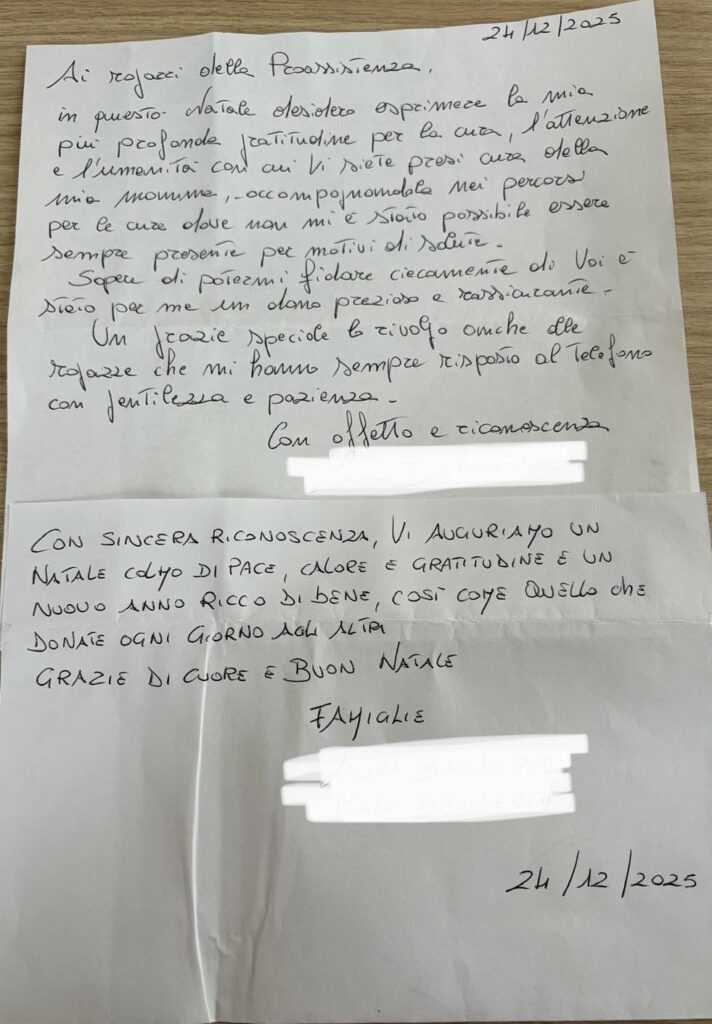 24/12/2025
Ai ragazzi della Proassistenza,
in questo Natale desidero esprimere la mia
più profonda gratitudine per la cura, l'attenzione
e l'umanità con cui Vi siete presi cura della
mia mamma, accompagnandola nei percorsi
per le cure dove non mi è stato possibile essere
sempre presente per motivi di salute.
Sapere di potermi fidare ciecamente di Voi è
stato per me un dono prezioso e rassicurante.
Un grazie speciale lo rivolgo anche alle
ragazze che mi hanno sempre risposto al telefono
con gentilezza e pazienza.
Con affetto e riconoscenza
CON SINCERA RICONOSCENZA, VI AUGURIAMO UN
NATALE COLMO DI PACE, CALORE E GRATITUDINE E UN
NUOVO ANNO RICCO DI BENE, COSÌ COME QUELLO CHE
DONATE OGNI GIORNO AGLI ALTRI
GRAZIE DI CUORE E BUON NATALE
FAMIGLIE
24/12/2025